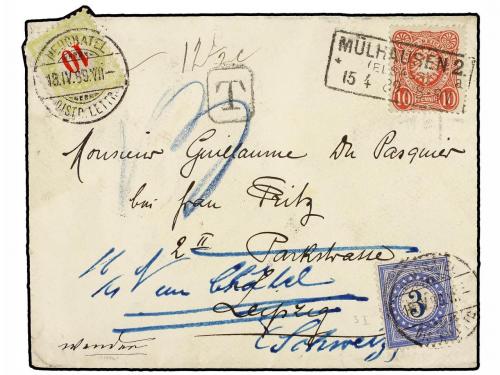 NEUCHATEL
18.IV.89.VII-
DISTR. LETTR.
10
T
13
MÜLHAUSEN 2.
15 4
10 PFENNIG 10
Monsieur Guillaume Du Pasquier
bei frau Fritz
2 II Parkstrasse
Leipzig
Neuchâtel
(Schweiz)
wenden
3